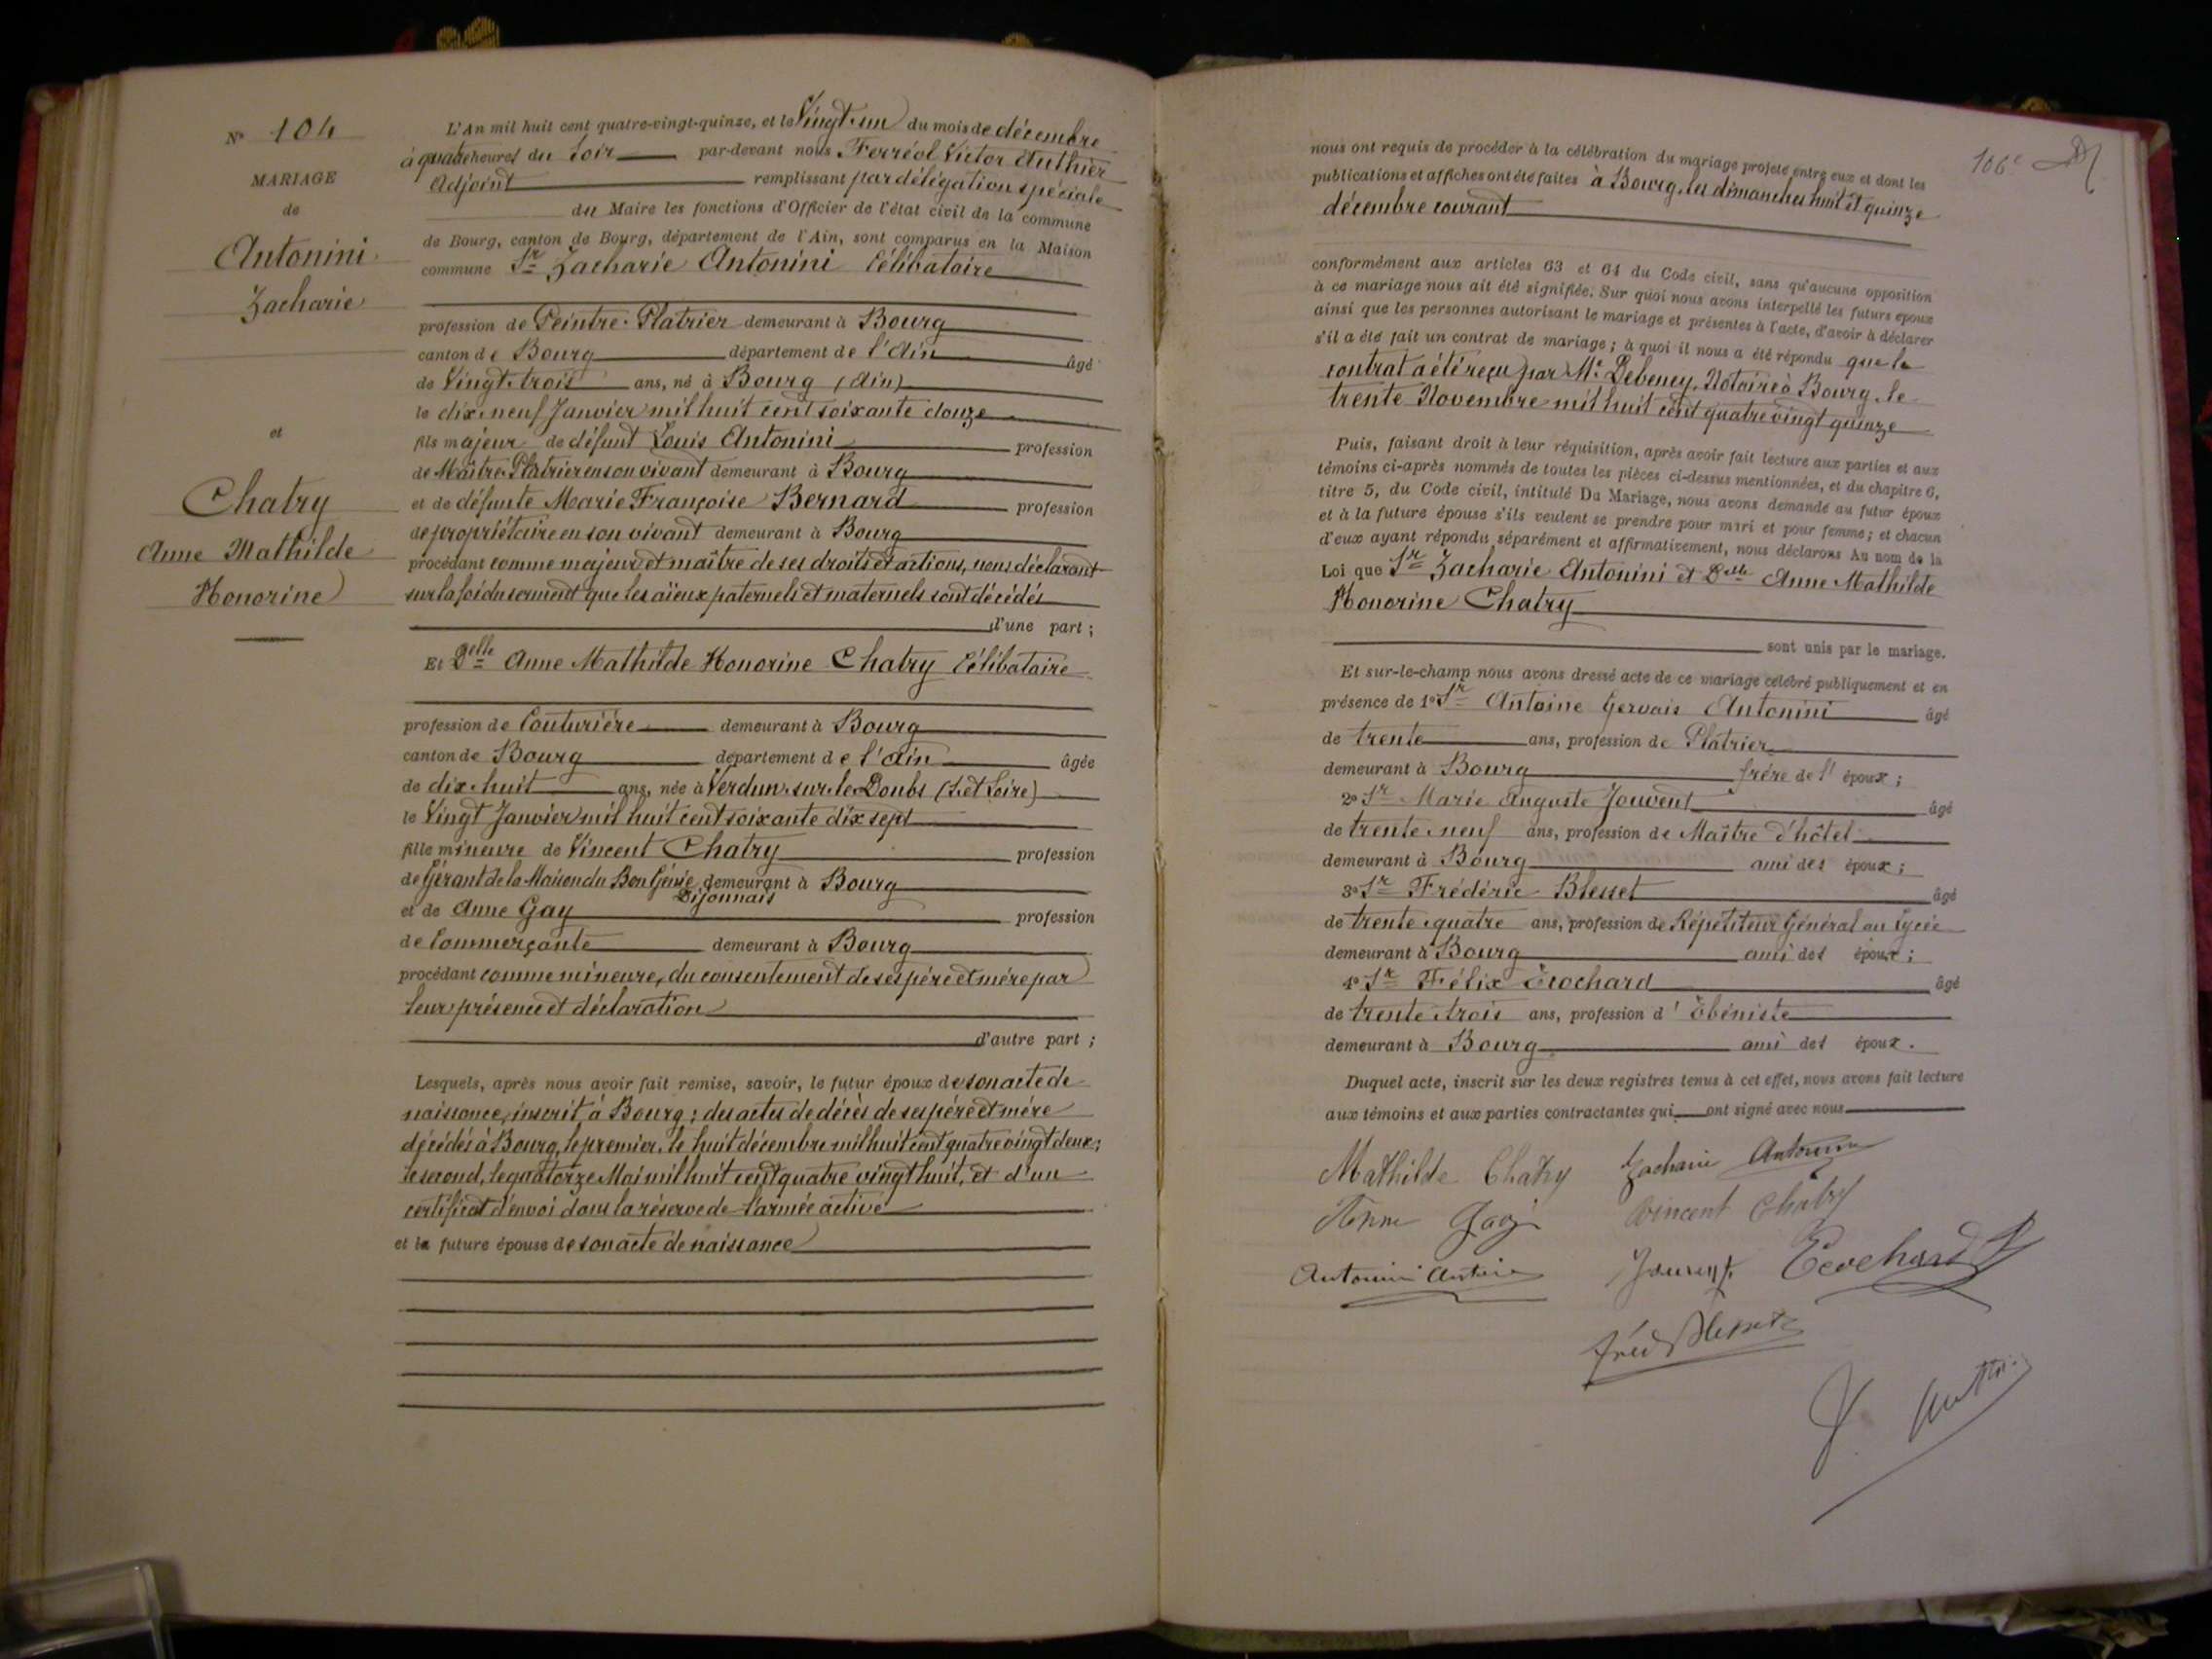 N° 104
MARIAGE
de
Antonini
Zacharie
et
Chatry
Anne Mathilde
Honorine
L'An mil huit cent quatre-vingt-quinze, et le Vingt-un du mois de décembre
à quatre heures du Soir par-devant nous Ferréol Victor Authier
Adjoint remplissant par délégation spéciale
du Maire les fonctions d'Officier de l'état civil de la commune
de Bourg, canton de Bourg, département de l'Ain, sont comparus en la Maison
commune Sr Zacharie Antonini Célibataire
profession de Peintre-Platrier demeurant à Bourg
canton de Bourg département de l'Ain âgé
de Vingt-trois ans, né à Bourg (Ain)
le dix-neuf Janvier mil huit cent soixante douze
fils majeur de défunt Louis Antonini profession
de Maître-Platrier en son vivant demeurant à Bourg
et de défunte Marie Françoise Bernard profession
de propriétaire en son vivant demeurant à Bourg
procédant comme majeur et maître de ses droits et actions, nous déclarant
sur la foi du serment que les aïeux paternels et maternels sont décédés
d'une part ;
Et Delle Anne Mathilde Honorine Chatry Célibataire
profession de Couturière demeurant à Bourg
canton de Bourg département de l'Ain âgée
de dix-huit ans, née à Verdun-sur-le-Doubs (S. et Loire)
le Vingt Janvier mil huit cent soixante dix sept
fille mineure de Vincent Chatry profession
de Gérant de la Maison du Bon Génie demeurant à Bourg
Dijonnais
et de Anne Gay profession
de Commerçante demeurant à Bourg
procédant comme mineure, du consentement de ses père et mère par
leur présence et déclaration
d'autre part ;
Lesquels, après nous avoir fait remise, savoir, le futur époux de son acte de
naissance, inscrit à Bourg ; des actes de décès de ses père et mère
décédés à Bourg, le premier, le huit décembre mil huit cent quatre vingt deux ;
le second, le quatorze Mai mil huit cent quatre vingt huit, et d'un
certificat d'envoi dans la réserve de l'armée active
et la future épouse de son acte de naissance
106e
nous ont requis de procéder à la célébration du mariage projeté entre eux et dont les
publications et affiches ont été faites à Bourg, les dimanches huit et quinze
décembre courant
conformément aux articles 63 et 64 du Code civil, sans qu'aucune opposition
à ce mariage nous ait été signifiée. Sur quoi nous avons interpellé les futurs époux
ainsi que les personnes autorisant le mariage et présentes à l'acte, d'avoir à déclarer
s'il a été fait un contrat de mariage ; à quoi il nous a été répondu que le
contrat a été reçu par Me Debeney, Notaire à Bourg, le
trente Novembre mil huit cent quatre vingt quinze
Puis, faisant droit à leur réquisition, après avoir fait lecture aux parties et aux
témoins ci-après nommés de toutes les pièces ci-dessus mentionnées, et du chapitre 6,
titre 5, du Code civil, intitulé Du Mariage, nous avons demandé au futur époux
et à la future épouse s'ils veulent se prendre pour mari et pour femme ; et chacun
d'eux ayant répondu séparément et affirmativement, nous déclarons Au nom de la
Loi que Sr Zacharie Antonini et Delle Anne Mathilde
Honorine Chatry
sont unis par le mariage.
Et sur-le-champ nous avons dressé acte de ce mariage célébré publiquement et en
présence de 1° Sr Antoine Gervais Antonini âgé
de trente ans, profession de Platrier
demeurant à Bourg frère de l'époux ;
2° Sr Marie Auguste Jouvent âgé
de trente-neuf ans, profession de Maître d'hôtel
demeurant à Bourg ami des époux ;
3° Sr Frédéric Blesset âgé
de trente-quatre ans, profession de Répétiteur Général au Lycée
demeurant à Bourg ami des époux ;
4° Sr Félix Ecochard âgé
de trente-trois ans, profession d'Ebéniste
demeurant à Bourg ami des époux.
Duquel acte, inscrit sur les deux registres tenus à cet effet, nous avons fait lecture
aux témoins et aux parties contractantes qui ont signé avec nous
Mathilde Chatry Zacharie Antonini
Anne Gay Vincent Chatry
Antonini Antoine Jouvent Ecochard
Fréd Blesset
F. Authier